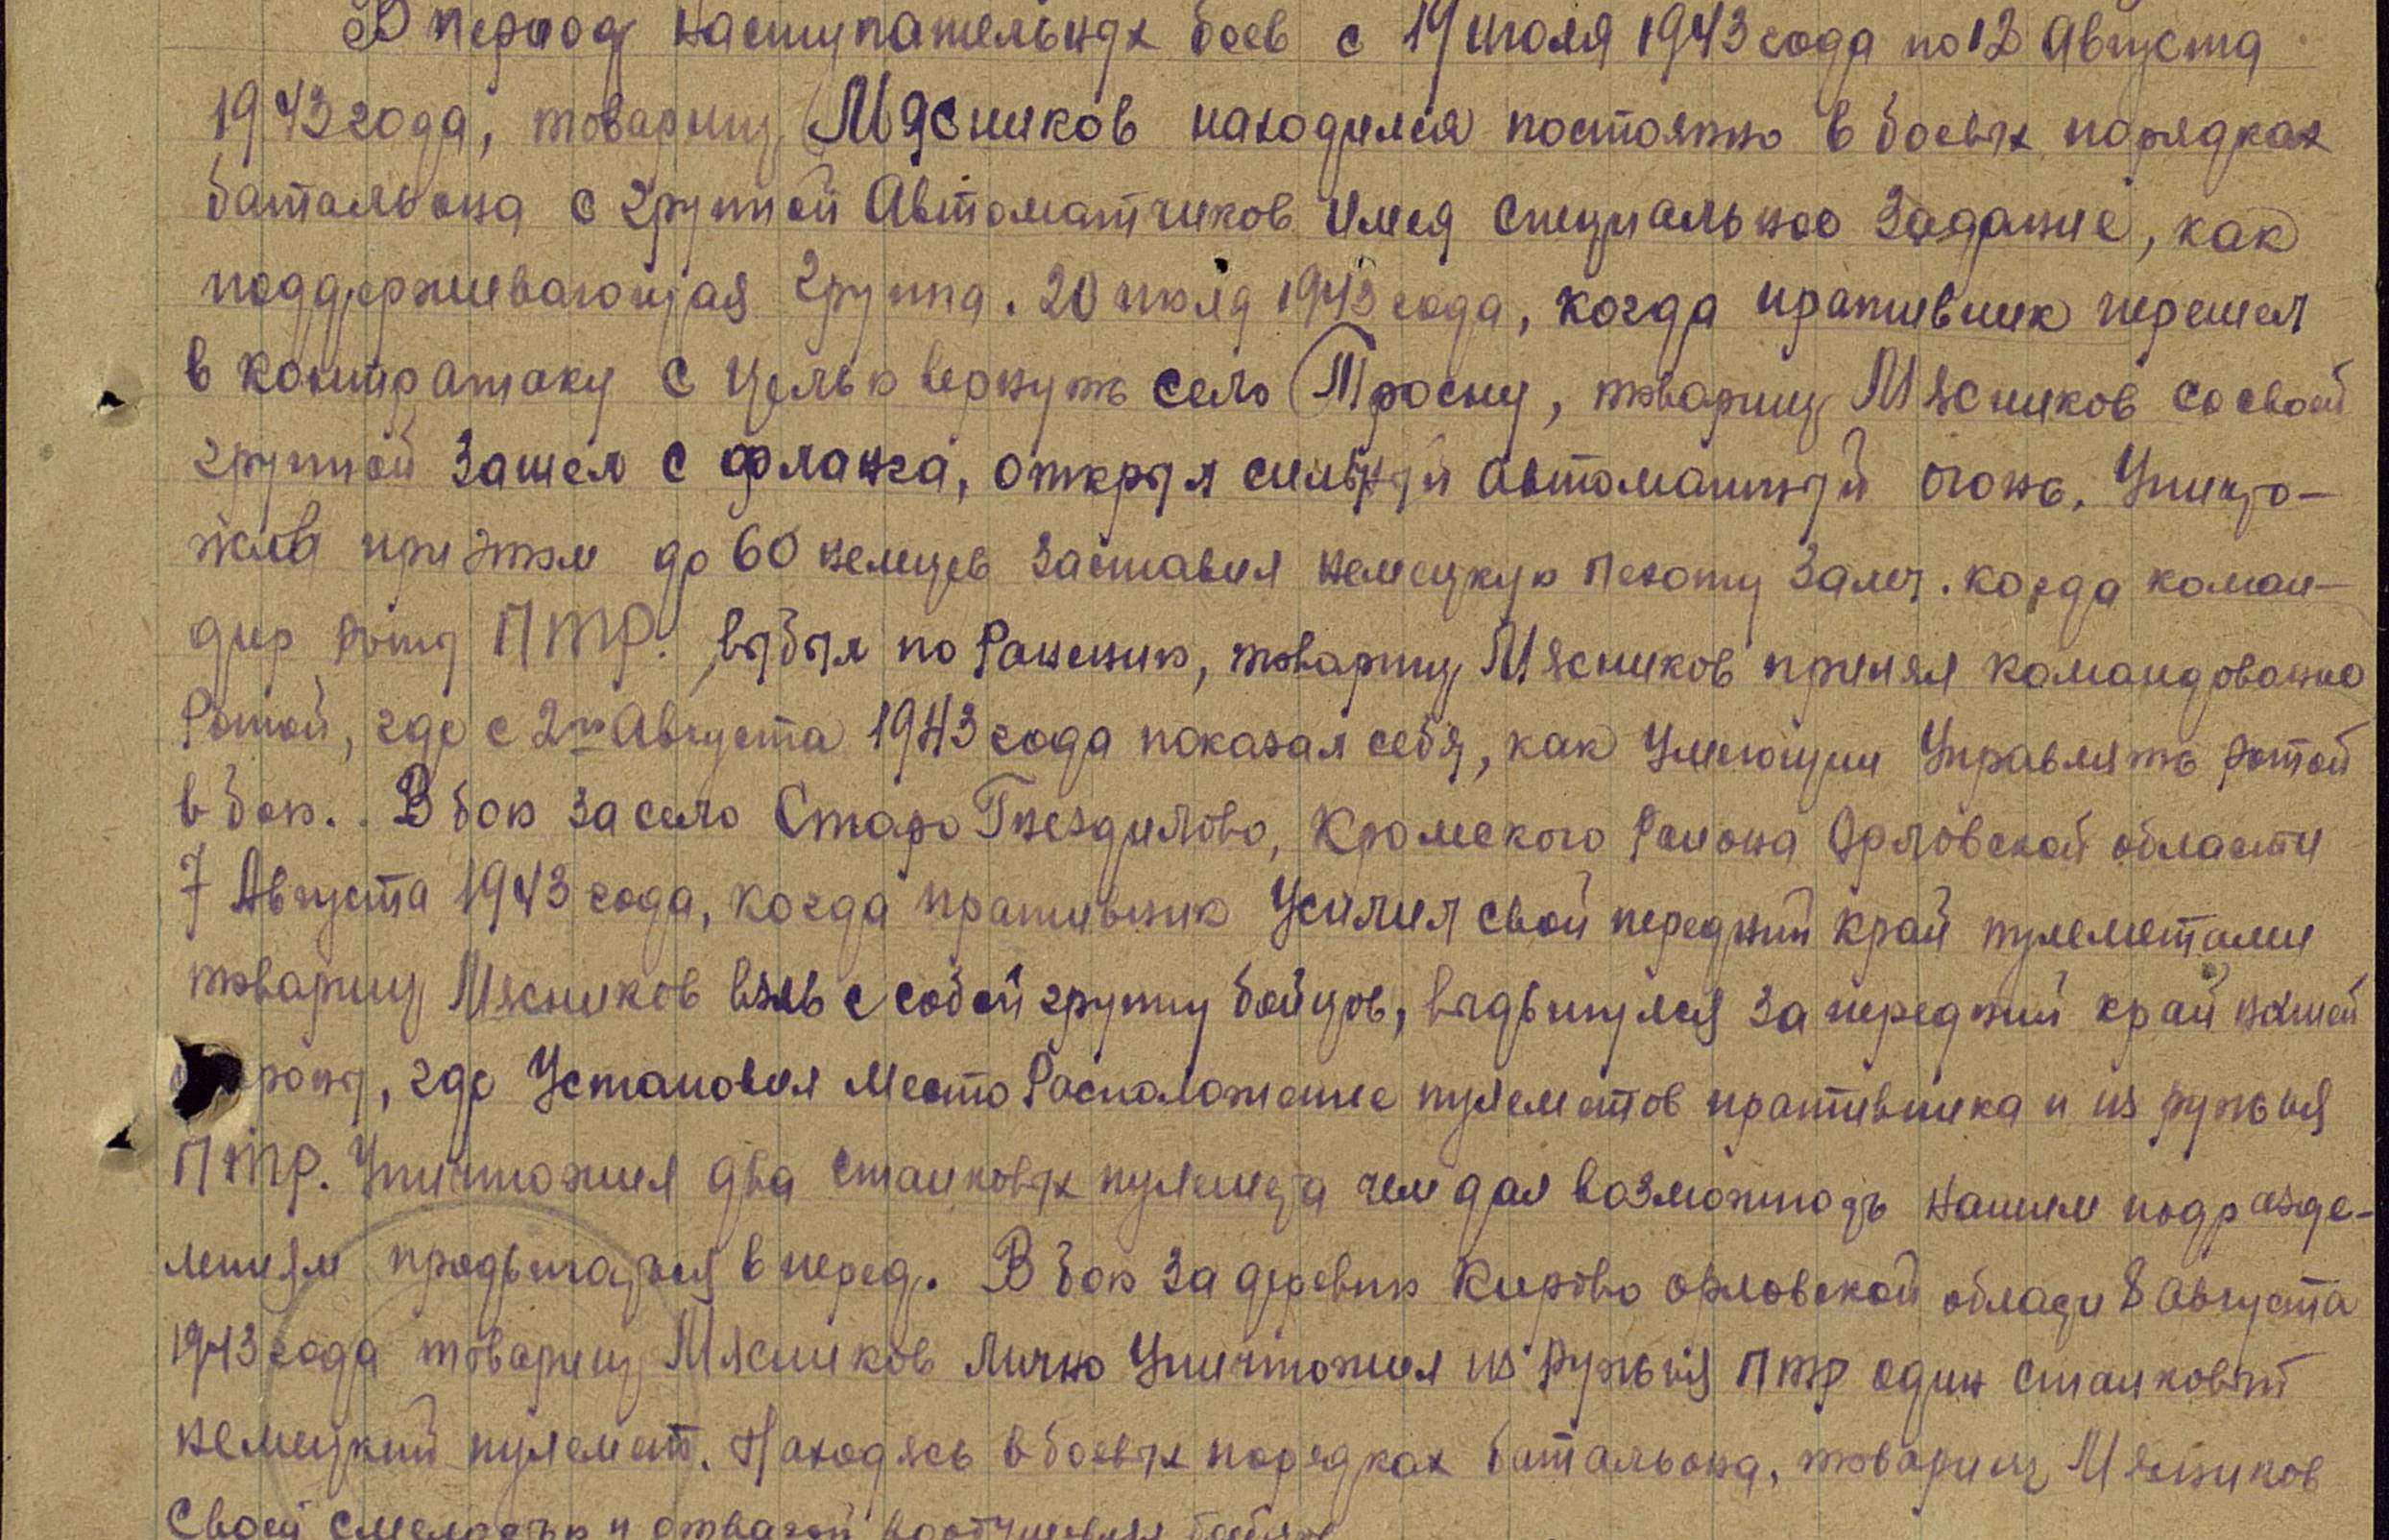 В период наступательных боев с 19 июля 1943 года по 12 Августа
1943 года, товарищ Мясников находился постоянно в боевых порядках
батальона с группой Автоматчиков имея специальное задание, как
поддерживающая группа. 20 июля 1943 года, когда противник перешел
в контратаку с целью вернуть село Тросну, товарищ Мясников со своей
группой зашел с фланга, открыл сильный автоматный огонь. Уничто-
жив при этом до 60 немцев заставил немецкую пехоту залеч. когда коман-
дир роты ПТР. выбыл по Ранению, товарищ Мясников принял командование
Ротой, где с 2го Августа 1943 года показал себя, как Умеющии Управлять ротой
в бою. В бою за село Старо Гнездилово, Кромского Раиона Орловской области
7 Августа 1943 года, когда противник Усилил свой передний край пулеметами
товарищ Мясников взяв с собой группу бойцов, выдвинулся за передний край нашей
роны, где Установил место Расположение пулеметов противника и из ружья
ПТР. Уничтожил два станковых пулемета чем дал возможность нашим подразде-
лениям продвигаться в перед. В бою за деревню Кирово орловской области 8 Августа
1943 года товарищ Мясников лично Уничтожил из ружья ПТР один станковый
немецкий пулемет. Находясь в боевых порядках батальона, товарищ Мясников
Своей смелостью и отвагой бойцов